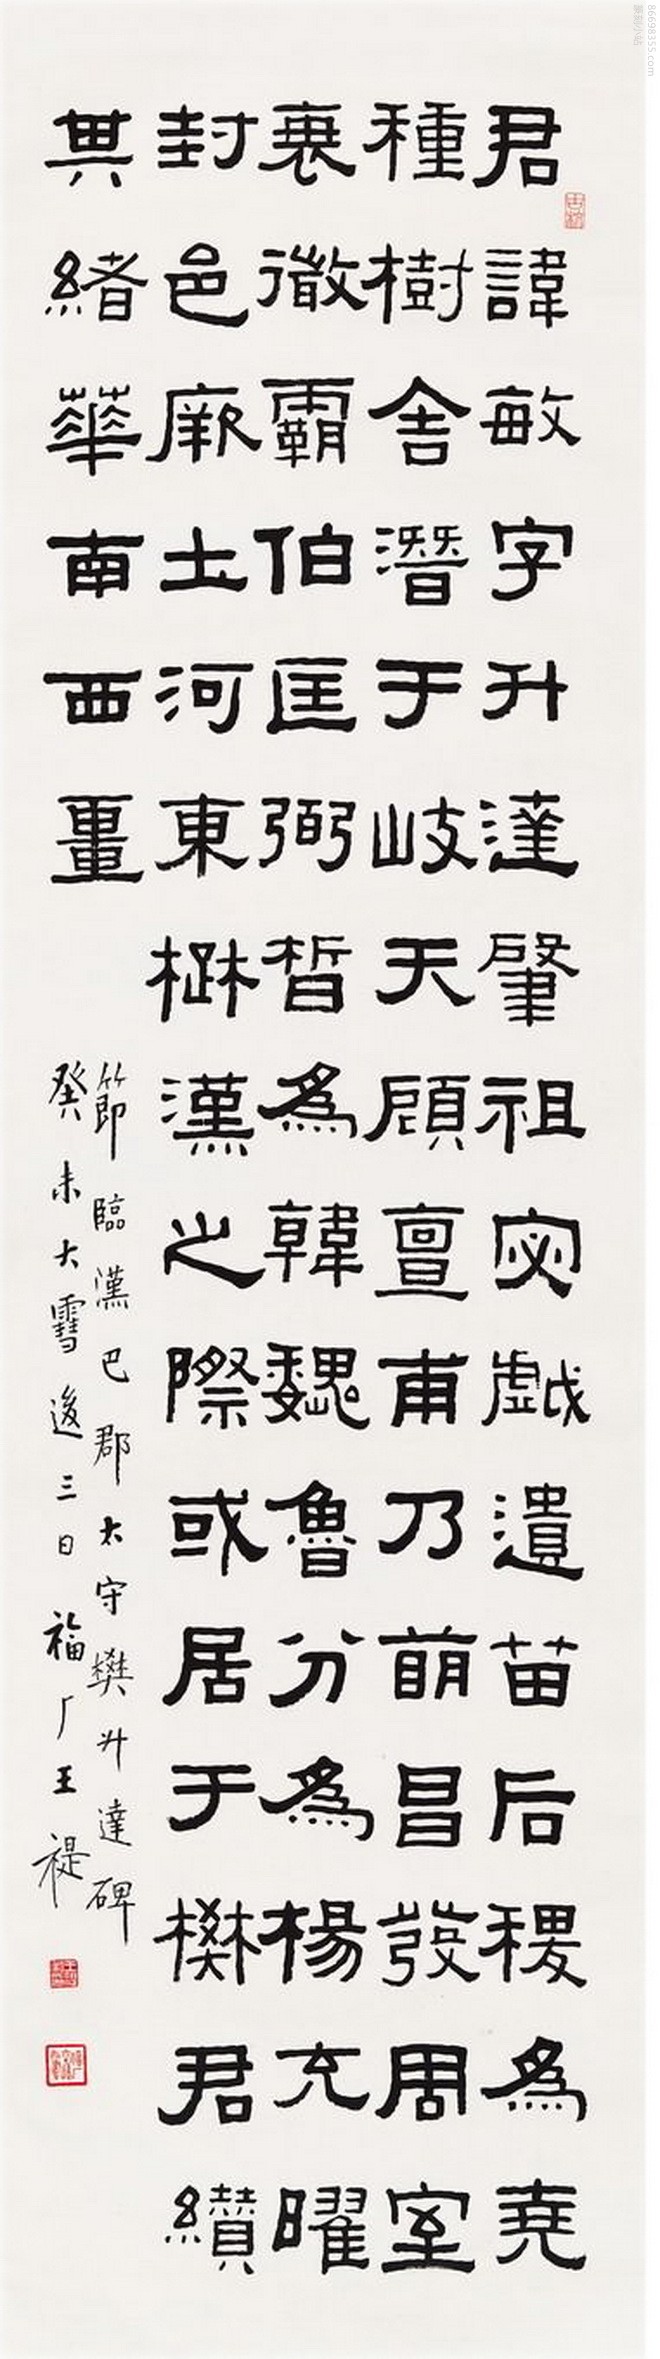 君諱敏字升達肇祖宓戲遺苗后稷為堯
種樹舍潛于岐天顧亶甫乃萌昌發周室
衰微霸伯匡弼晳為韓魏魯分為楊充曜
封邑厥土河東楚漢之際或居于樊君纘
其緒華南西畺
節臨漢巴郡太守樊升達碑
癸未大雪後三日福厂王禔
86698355.com
篆刻小站